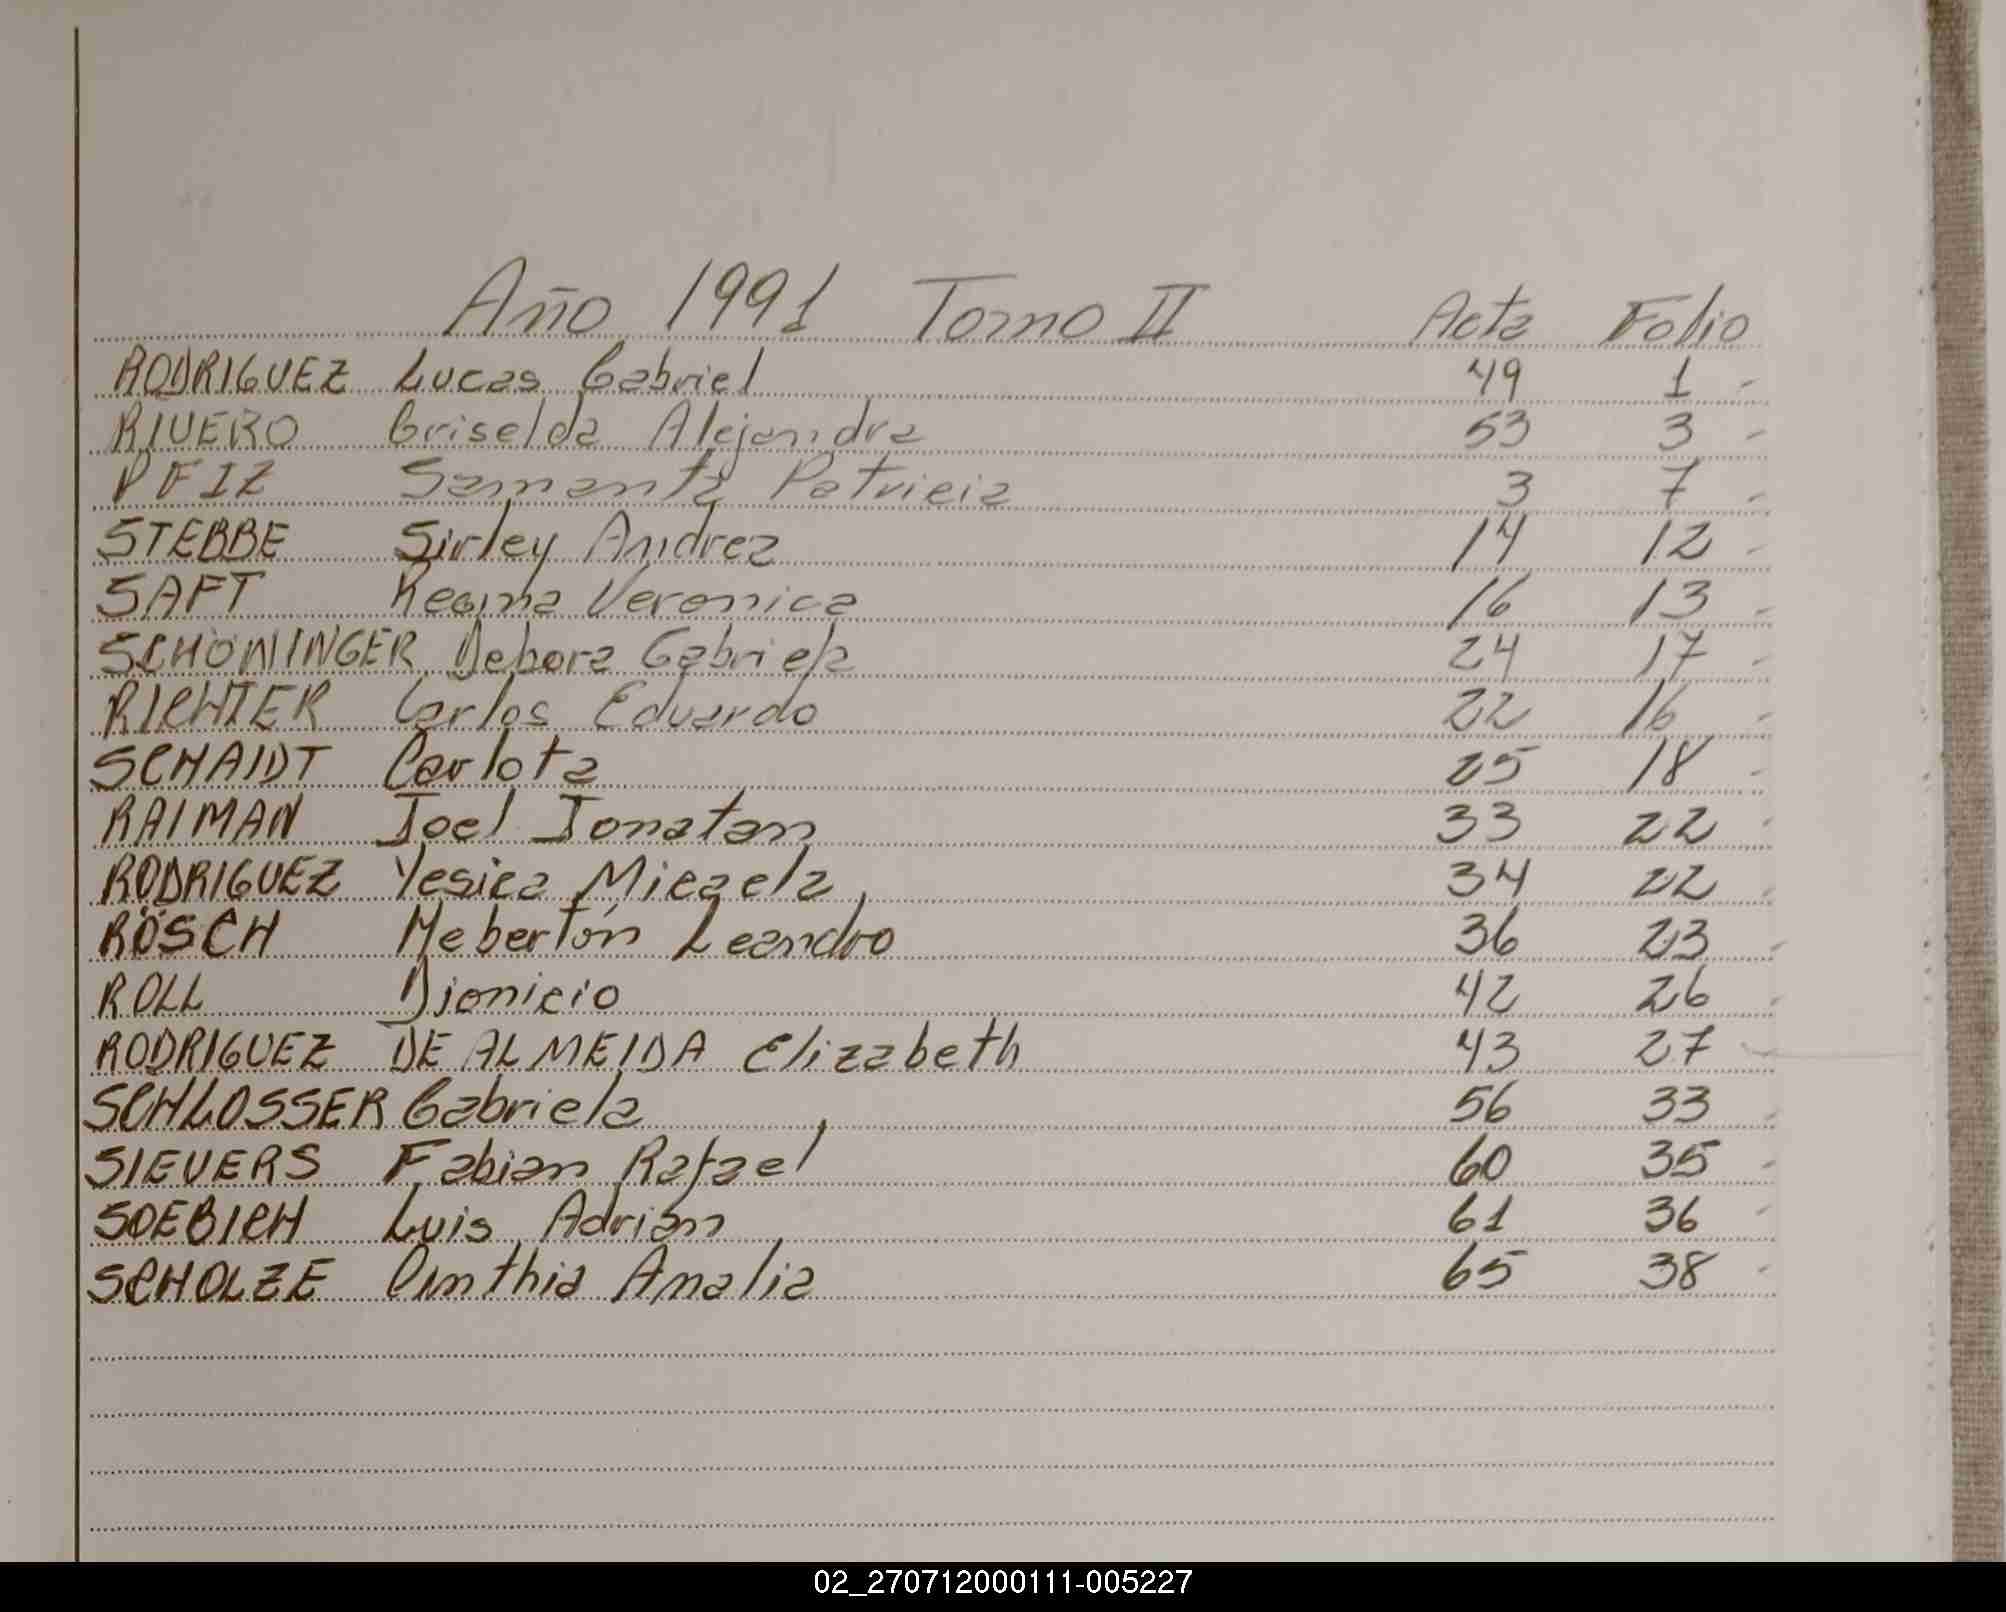 Año 1991 Tomo II Acta Folio
RODRIGUEZ Lucas Gabriel 49 1 -
RIVERO Griselda Alejandra 53 3 -
PFIZ Samanta Patricia 3 7 -
STEBBE Sirley Andrea 14 12 -
SAFT Regina Veronica 16 13 -
SCHÖNINGER Debora Gabriela 24 17 -
RICHTER Carlos Eduardo 22 16 -
SCHAIDT Carlota 25 18 -
RAIMAN Joel Jonatan 33 22 -
RODRIGUEZ Yesica Micaela 34 22 -
RÖSCH Heberton Leandro 36 23 -
ROLL Dionicio 42 26 -
RODRIGUEZ DE ALMEIDA Elizabeth 43 27 -
SCHLOSSER Gabriela 56 33 -
SIEVERS Fabian Rafael 60 35 -
SOEBICH Luis Adrián 61 36 -
SCHOLZE Cinthia Analia 65 38 -
02_270712000111-005227